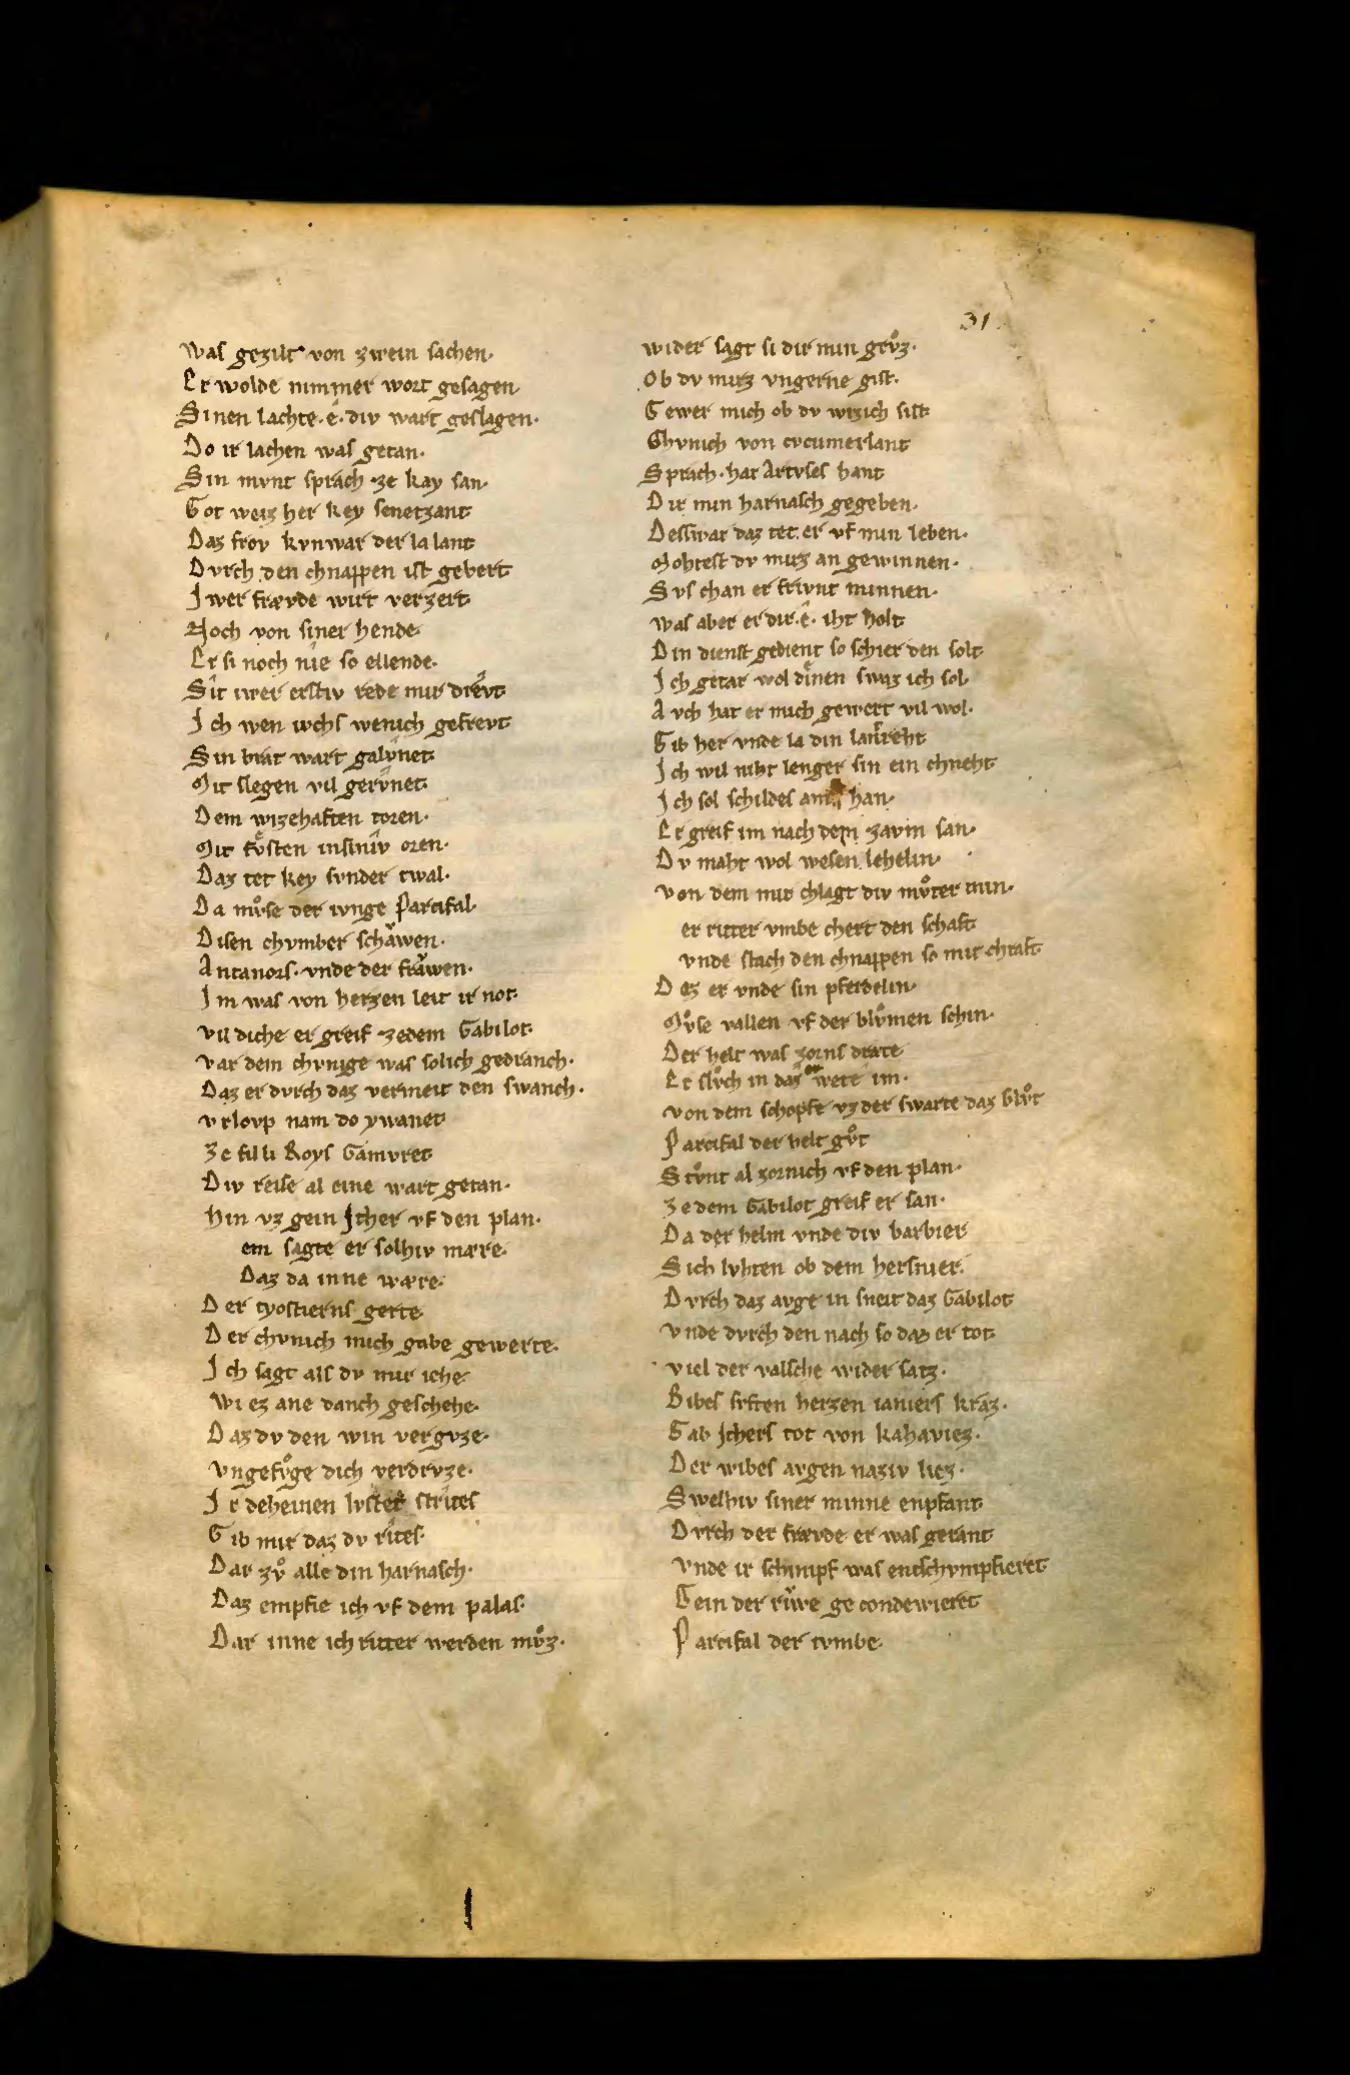 31
Was gezilt von zwein sachen.
Er wolde nimmer wort gesagen
Sinen lachte. ê. div wart geslagen.
Do ir lachen was getan.
Sin mvnt sprach ze kay san.
Got weiz her key senetzant
Daz frov kvnwar der la lant
Dvrch den chnappen ist gebert
Iwer frævde wirt verzert
Noch von siner hende.
Er si noch nie so ellende.
Sit iwer erstiv rede mir drevt
Ich wen ivchs wenich gefrevt
Sin brat wart galvnet.
Mit slegen vil gervnet.
Dem wizehaften toren.
Mit fvͤsten insiniv oren.
Daz tet key svnder twal.
Da mvͦse der ivnge Parcifal.
Disen chvmber schaͮwen.
Antanors. vnde der fraͮwen.
Im was von herzen leit ir not.
vil diche er greif zedem Gabilot.
var dem chvnige was solich gedranch.
Daz er dvrch daz vermeit den swanch.
vrlovp nam do ywanet
Ze fil li Roys Gamvret
Div reise al eine wart getan.
Hin vz gein Ither vf den plan.
em sagte er solhiv mære.
Daz da inne wære.
Der tyostierns gerte
Der chvnich mich gabe gewerte.
Ich sagt als dv mir iehe.
Wi ez ane danch geschehe.
Daz dv den win vergvze.
vngefvͦge dich verdrvze.
Ir deheinen lvstet strites
Gib mir daz dv rites.
Dar zvͦ alle din harnasch.
Daz empfie ich vf dem palas.
Dar inne ich ritter werden mvͦz.
wider sagt si dir min grvͦz.
Ob dv mirz vngerne gist.
Gewer mich ob dv wizich sist
Chvnich von cvcumerlant
Sprach. hat Artvses hant
Dir min harnasch gegeben.
Desswar daz tet. er vf min leben.
Mohtest dv mirz an gewinnen.
Svs chan er frivnt minnen.
was aber er dir. ê. iht holt
Din dienst gedient so schier den solt
Ich getar wol dienen swaz ich sol.
Avch hat er mich gewert vil wol.
Gib her vnde la din lantreht
Ich wil niht lenger sin ein chneht
Ich sol schildes amt han.
Er greif im nach dem zavm san.
Dv maht wol wesen lehelin.
von dem mir chlagt div mvͦter min.
er ritter vmbe chert den schaft
vnde stach den chnappen so mit chraft.
Dez er vnde sin pferdelin.
Mvͦse vallen vf der blvͦmen schin.
Der helt was zorns dræte
Er slvͦch in daz wete im.
von dem schopfe vz der swarte daz blvͦt
Parcifal der helt gvͦt
Stvͦnt al zornich vf den plan.
Ze dem Gabilot greif er san.
Da der helm vnde div barbier
Sich lvhten ob dem hersnier.
Dvrch daz avge in sneit daz Gabilot
vnde dvrch den nach so daz er tot
viel der valsche wider satz.
Bibes svften herzen iamers kraz.
Gab Ithers tot von kahaviez.
Der wibes avgen naziv liez.
Swelhiv siner minne enpfant
Dvrch der frævde er was gerant
vnde ir schimpf was entschvmpfieret
Gein der riwe ge condewieret
Parcifal der tvmbe.